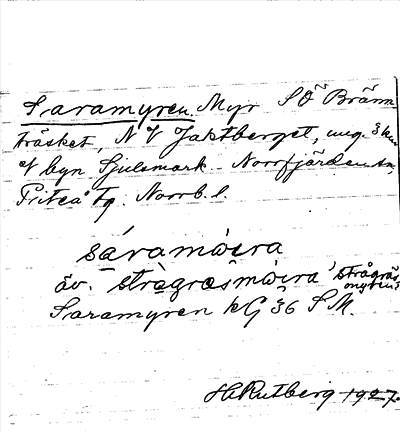 Saramyren. Myr SÖ Bränn-
träsket, NV Jaktberget, ung. 3 km
V byn Sjulsmark. Norrfjärden sn,
Piteå tg. Norrb. l.
sáramòıra
äv. strågrasmòıra 'strågräs-
myren'
Saramyren kG 36 SM.
H. Rutberg 1927.